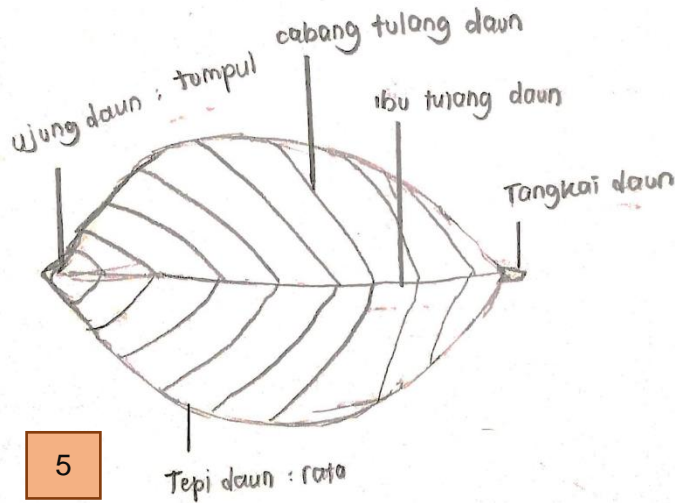 cabang tulang daun
ujung daun : tumpul
ibu tulang daun
Tangkai daun
Tepi daun : rata
5